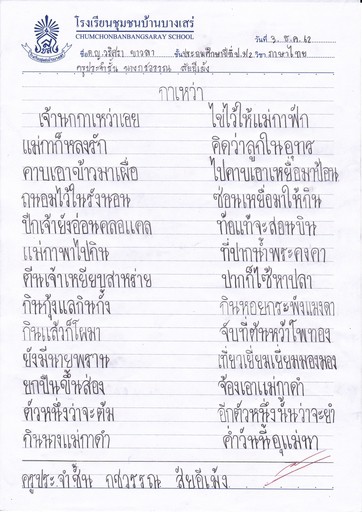 โรงเรียนชุมชนบ้านบางเสร่
CHUMCHONBANBANGSARAY SCHOOL
วันที่ 3. ธ.ค. 62
ชื่อ ด.ญ. วริศรา ขาวตา ชั้นประถมศึกษาปีที่ ป.ฟ2 วิชา ภาษาไทย
ครูประจำชั้น นางกชวรรณ
กาเหว่า
เจ้านกกาเหว่าเอย ไข่ไว้ให้แม่กาฟัก
แม่กาก็หลงรัก คิดว่าลูกในอุทร
คาบเอาข้าวมาเผื่อ ไปคาบเอาเหยื่อมาป้อน
ถนอมไว้ในรังนอน ซ่อนเหยื่อมาให้กิน
ปีกเจ้ายังอ่อนคลอแคล ท้อแท้จะสอนบิน
แม่กาพาไปกิน ที่ปากน้ำพระคงคา
ตีนเจ้าเหยียบสาหร่าย ปากก็ไซ้หาปลา
กินกุ้งแลกินกั้ง กินหอยกระพังแมงดา
กินแล้วก็โผมา จับที่ต้นหว้าโพทอง
ยังมีนายพราน เที่ยวเยี่ยมเยี่ยมมองมอง
ยกปืนขึ้นส่อง จ้องเอาแม่กาดำ
ตัวหนึ่งว่าจะต้ม อีกตัวหนึ่งนั้นว่าจะยำ
กินนางแม่กาดำ ค่ำวันนี้อุแม่นา
ครูประจำชั้น กชวรรณ